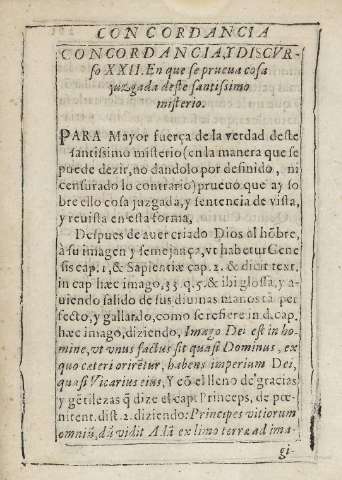 CONCORDANCIA
CONCORDANCIA, Y DISCVR-
so XXII. En que se prueua cosa
juzgada deste santissimo
misterio.
PARA Mayor fuerça de la verdad deste
santissimo misterio (en la manera que se
puede dezir, no dandolo por definido, ni
censurado lo contrario) prueuo que ay so
bre ello cosa juzgada, y sentencia de vista,
y reuista en esta forma,
Despues de auer criado Dios al hõbre,
à su imagen y semejança, vt habetur Gene
sis cap. 1, & Sapientiæ cap. 2. & dicit text.
in cap hæc imago, 33. q. 5. & ibi glossa, y a-
uiendo salido de sus diuinas manos tã per
fecto, y gallardo, como se refiere in d. cap.
hæc imago, diziendo, Imago Dei est in ho-
mine, vt vnus factus sit quasi Dominus, ex
quo cæteri orirẽtur, habens imperium Dei,
quasi Vicarius eius, Y cõ el lleno de gracias
y gẽtilezas q̃ dize el cap. Princeps, de pœ-
nitent. dist. 2. diziendo: Principes vitiorum
omniũ, dũ vidit Adã ex limo terræ ad ima-
gi-